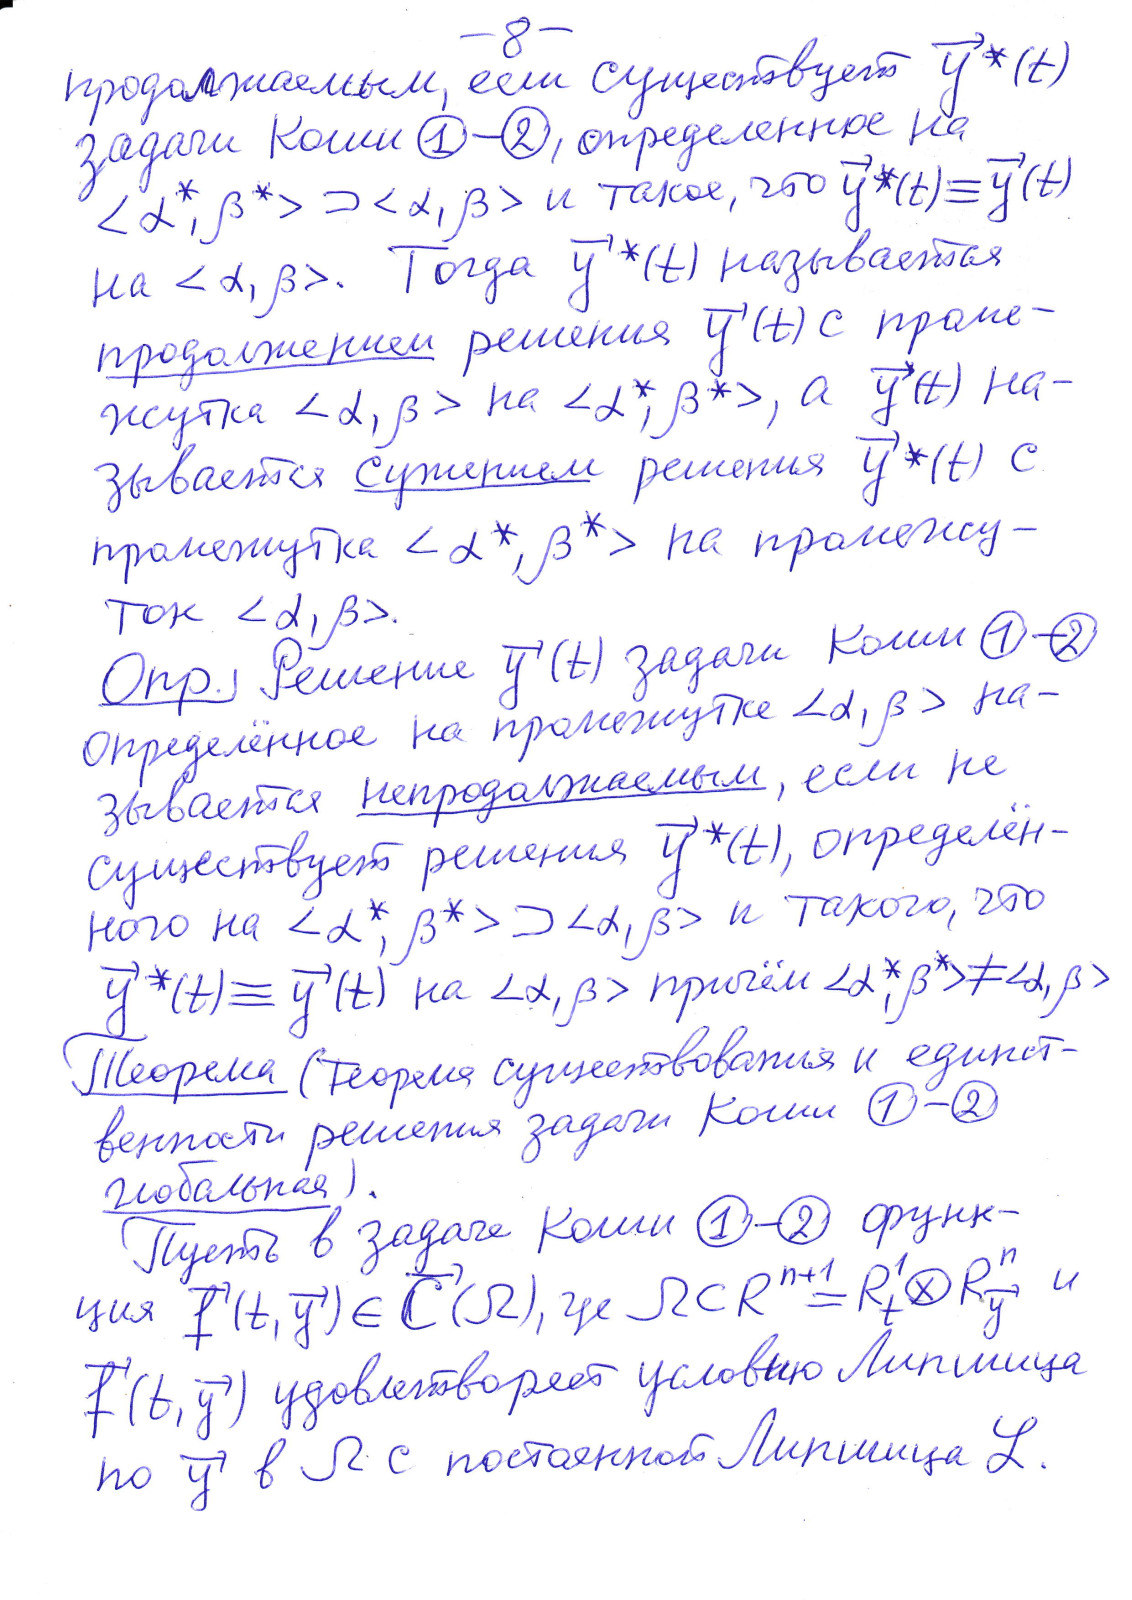 –8–
продолжаемым, если существует y⃗*(t)
задачи Коши ①–②, определенное на
<α*, β*> ⊃ <α, β> и такое, что y⃗*(t) ≡ y⃗(t)
на <α, β>. Тогда y⃗*(t) называется
продолжением решения y⃗(t) с проме-
жутка <α, β> на <α*, β*>, а y⃗(t) на-
зывается сужением решения y⃗*(t) с
промежутка <α*, β*> на промежу-
ток <α, β>.
Опр. Решение y⃗(t) задачи Коши ①–②
определённое на промежутке <α, β> на-
зывается непродолжаемым, если не
существует решения y⃗*(t), определён-
ного на <α*, β*> ⊃ <α, β> и такого, что
y⃗*(t) ≡ y⃗(t) на <α, β> причём <α*, β*> ≠ <α, β>
Теорема (Теорема существования и единст-
венности решения задачи Коши ①–②
глобальная).
Пусть в задаче Коши ①–② функ-
ция f⃗(t, y⃗) ∈ C⃗(Ω), где Ω ⊂ R^{n+1} = R^1_t ⊗ R^n_{y⃗} и
f⃗(t, y⃗) удовлетворяет условию Липшица
по y⃗ в Ω с постоянной Липшица L.